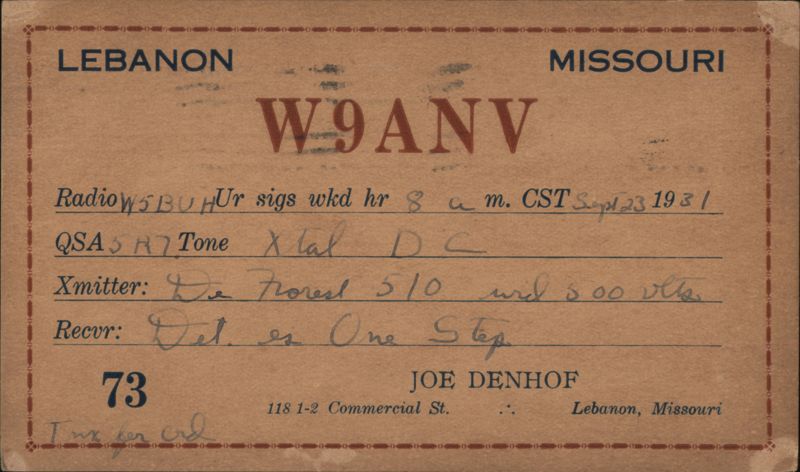 LEBANON MISSOURI
W9ANV
Radio W5BUH Ur sigs wkd hr 8 a m. CST Sept 23 1931
QSA 5 R7 Tone Xtal DC
Xmitter: De Forest 510 wid 500 vlts
Recvr: Det. es One Step
73 JOE DENHOF
118 1-2 Commercial St. ∴ Lebanon, Missouri
Tnx fer crd